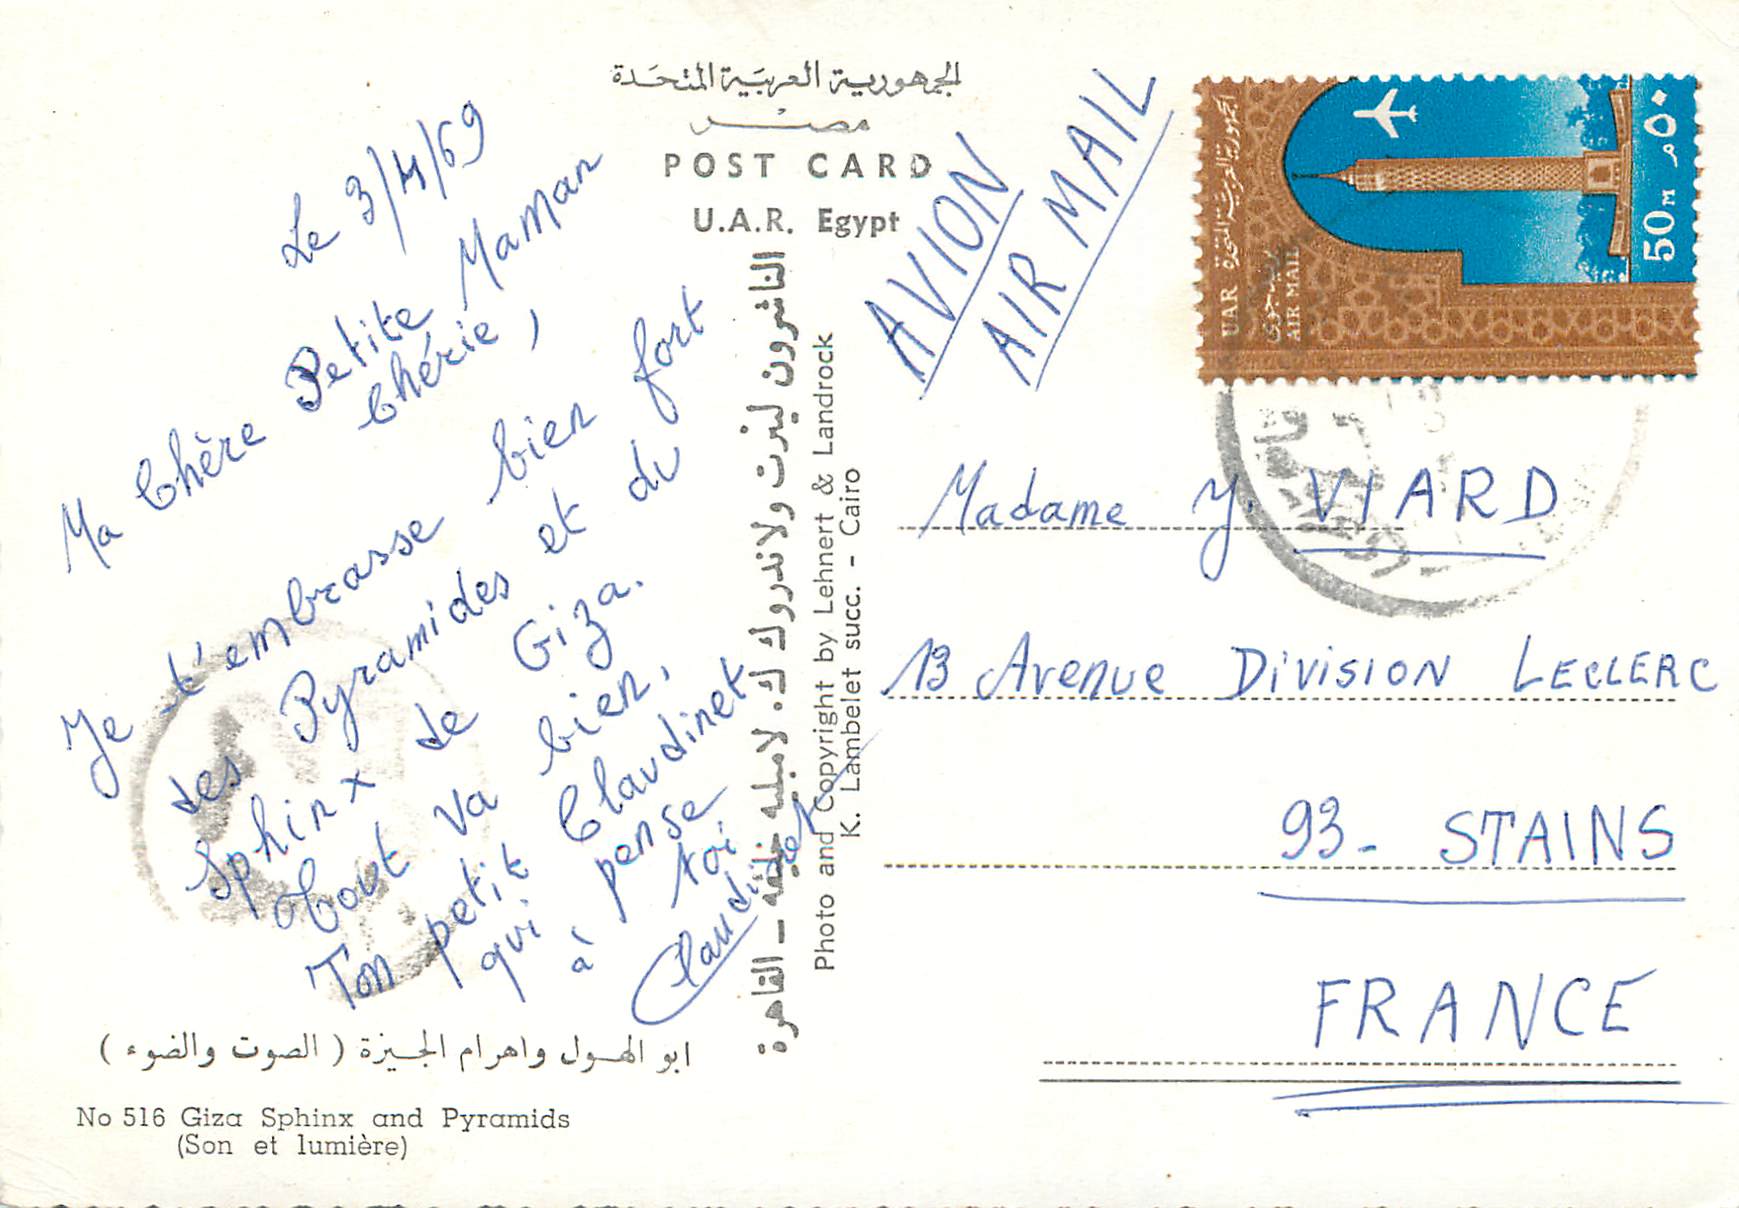 الجمهورية العربية المتحدة
مصر
POST CARD
U.A.R. Egypt
Le 3/4/69
Ma Chère Petite Maman
Chérie,
Je t'embrasse bien fort
des Pyramides et du
Sphinx de Giza.
Tout va bien,
Ton petit Claudinet
qui pense
à toi
Claudinet
ابو الهول واهرام الجيزة ( الصوت والضوء )
No 516 Giza Sphinx and Pyramids
(Son et lumière)
الناشرون لينرت ولاندروك ك. لامبليه خليفه - القاهرة
Photo and Copyright by Lehnert & Landrock
K. Lambelet succ. - Cairo
AVION
AIR MAIL
الجمهورية العربية المتحدة
UAR
بريد جوى
AIR MAIL
٥٠ م
50 M
Madame Y. VIARD
13 Avenue DIVISION LECLERC
93- STAINS
FRANCE